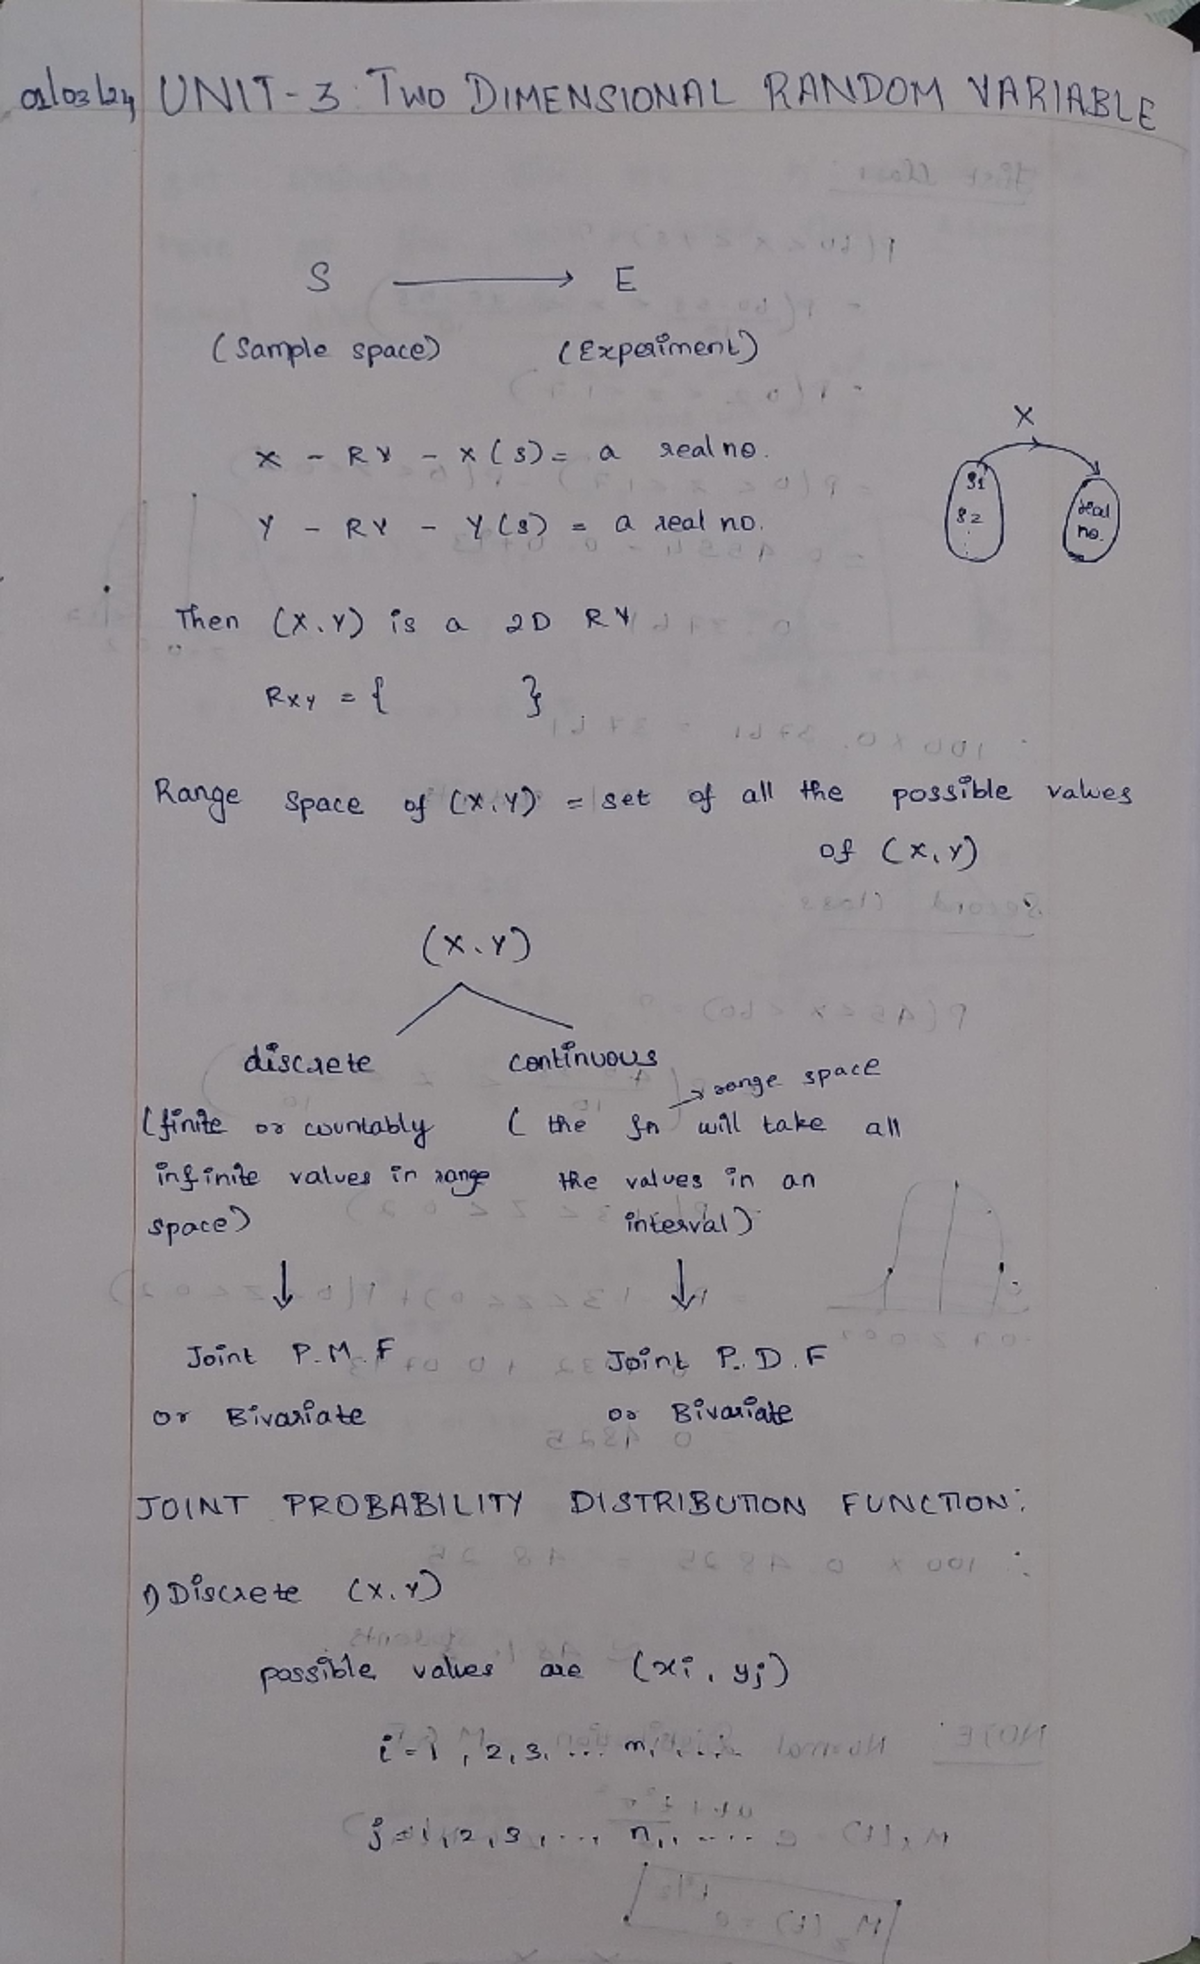 01/03/24, UNIT-3: TWO DIMENSIONAL RANDOM VARIABLE
S → E
(Sample space) (Experiment)
X
X - RV - X(s) = a real no.
s1
s2
real
no.
Y - RV - Y(s) = a real no.
Then (X,Y) is a 2D RV
RXY = { }
Range space of (X,Y) = set of all the possible values
of (X,Y)
(X,Y)
discrete continuous
→ range space
(finite or countably ( the fn will take all
infinite values in range the values in an
space) interval)
↓ ↓
Joint P.M.F Joint P.D.F
or Bivariate or Bivariate
JOINT PROBABILITY DISTRIBUTION FUNCTION:
1) Discrete (X,Y)
possible values are (xi, yj)
i = 1, 2, 3, ... m, ....
j = 1, 2, 3, ..., n, ....